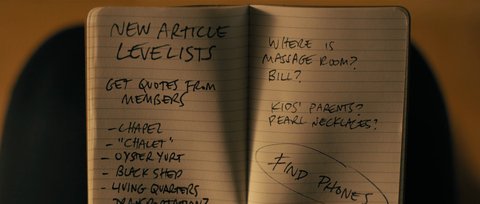 NEW ARTICLE
LEVELISTS
GET QUOTES FROM
MEMBERS
- CHAPEL
- "CHALET"
- OYSTER YURT
- BLACK SHED
- LIVING QUARTERS
WHERE IS
MASSAGE ROOM?
BILL?
KIDS' PARENTS?
PEARL NECKLACES?
FIND PHONES